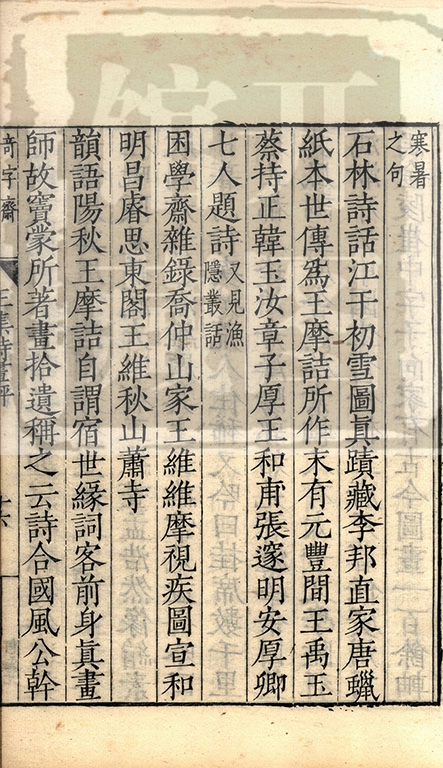 寒暑
之句
石林詩話江干初雪圖真蹟藏李邦直家唐蠟
紙本世傳為王摩詰所作末有元豐間王禹玉
蔡持正韓玉汝章子厚王和甫張邃明安厚卿
七人題詩又見漁
隱叢話
困學齋雜錄喬仲山家王維維摩視疾圖宣和
明昌睿思東閣王維秋山蕭寺
韻語陽秋王摩詰自謂宿世緣詞客前身真畫
師故竇蒙所著畫拾遺稱之云詩合國風公幹
奇字齋